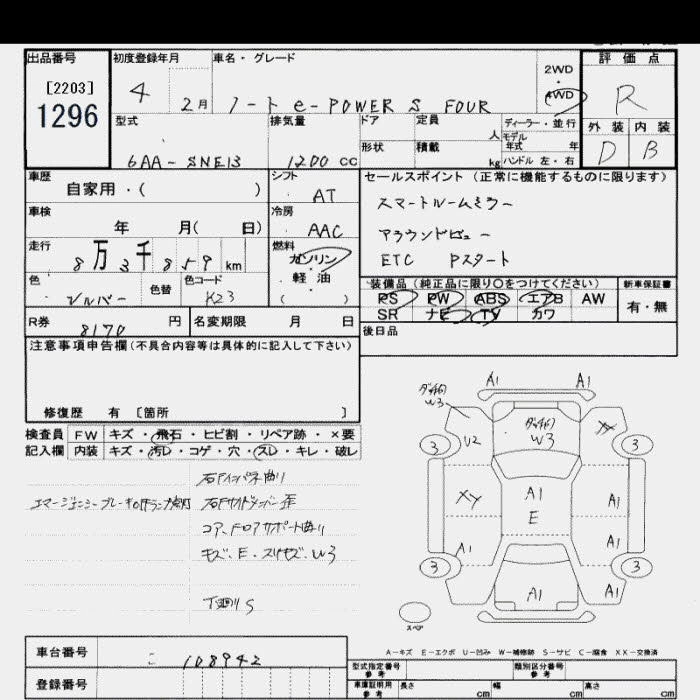 出品番号
[2203]
1296
初度登録年月
4 2月
車名・グレード
ノート e-POWER S FOUR
2WD
・
4WD
評価点
R
外装 内装
D B
型式
6AA-SNE13
排気量
1200 cc
ドア
形状
定員
人
積載
kg
ディーラー・並行
モデル
年式 年
ハンドル 左・右
車歴
自家用・( )
シフト
AT
車検
年 月( 日)
冷房
AAC
走行
8万3千859km
燃料
ガソリン
・
軽油
( )
色
シルバー
色替
色コード
K23
R券
8170円
名変期限 月 日
セールスポイント(正常に機能するものに限ります)
スマートルームミラー
アラウンドビュー
ETC Pスタート
装備品(純正品に限り○をつけてください)
PS PW ABS エアB AW
SR ナビ TV カワ
新車保証書
有・無
後日品
注意事項申告欄(不具合内容等は具体的に記入して下さい)
修復歴 有 [箇所 ]
検査員
記入欄
FW キズ・飛石・ヒビ割・リペア跡・×要
内装 キズ・汚レ・コゲ・穴・スレ・キレ・破レ
右Fインパネ曲り
エマージェンシーブレーキOFFランプ点灯
右Fサイドメンバー歪
コア、Fロアサポート曲り
キズ、E・スリキズ、W3
下廻りS
A1 A1
W3
W3
XX
3 3
U2
XY
A1
E
A1
A1
A1
3 3
A1
A1
スペア
A-キズ E-エクボ U-凹み W-補修跡 S-サビ C-腐食 XX-交換済
車台番号
108942
登録番号
型式指定番号
参考
類別区分番号
参考
車庫証明用
参考
長さ cm
幅 cm
高さ cm